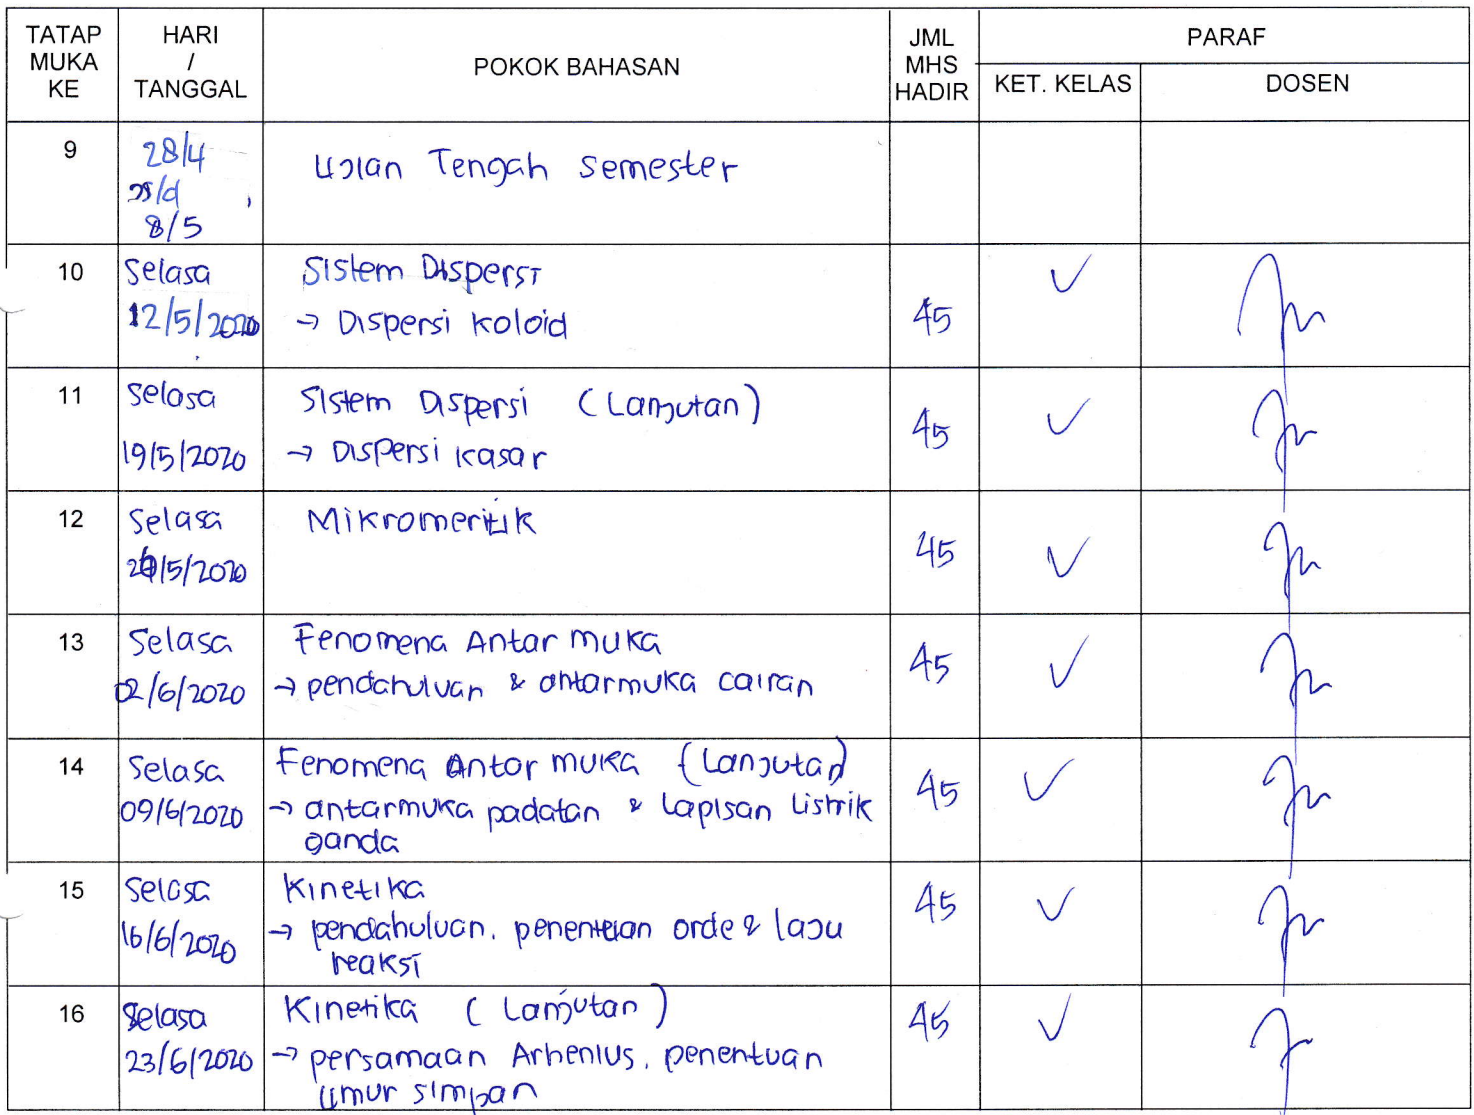 TATAP MUKA KE | HARI / TANGGAL | POKOK BAHASAN | JML MHS HADIR | PARAF
KET. KELAS | DOSEN
9 | 28/4 s/d 8/5 | Ujian Tengah Semester
10 | Selasa 12/5/2020 | Sistem Dispersi | 45 | ✓
→ Dispersi koloid
11 | Selasa 19/5/2020 | Sistem Dispersi (Lanjutan) | 45 | ✓
→ Dispersi kasar
12 | Selasa 26/5/2020 | Mikromeritik | 45 | ✓
13 | Selasa 02/6/2020 | Fenomena Antar muka | 45 | ✓
→ pendahuluan & antarmuka cairan
14 | Selasa 09/6/2020 | Fenomena Antar muka (Lanjutan) | 45 | ✓
→ antarmuka padatan & Lapisan Listrik
ganda
15 | Selasa 16/6/2020 | Kinetika | 45 | ✓
→ pendahuluan, penentuan orde & laju
reaksi
16 | Selasa 23/6/2020 | Kinetika (Lanjutan) | 45 | ✓
→ persamaan Arhenius, penentuan
umur simpan